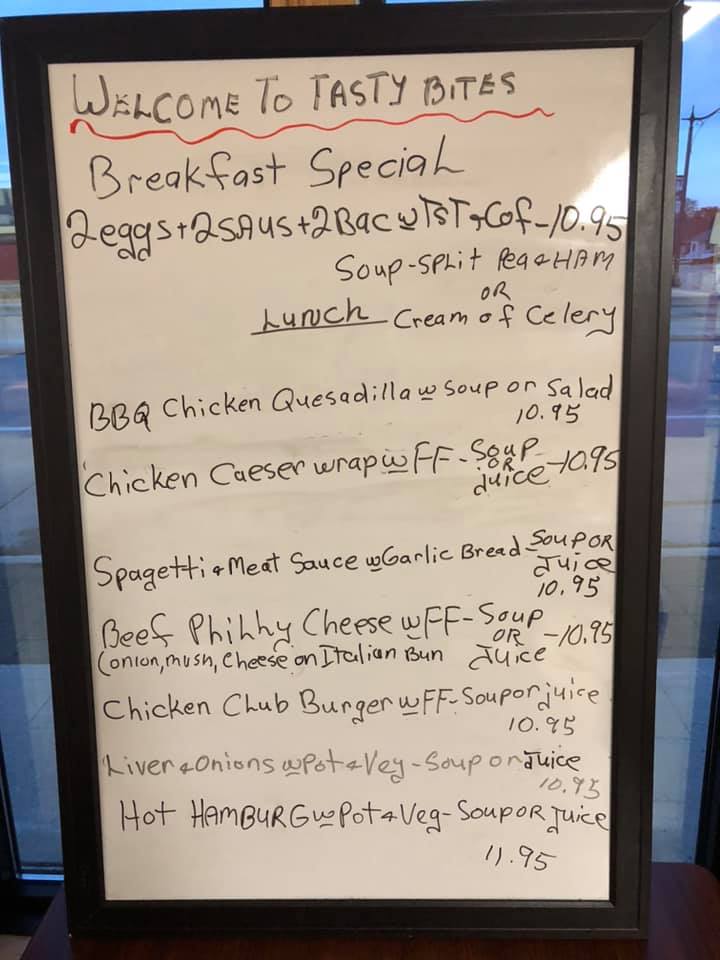 WELCOME TO TASTY BITES
Breakfast Special
2eggs+2SAUS+2Bac w TST+Cof-10.95
Soup-SPLIT Pea & HAM
OR
Lunch Cream of Celery
BBQ Chicken Quesadilla w Soup or Salad
10.95
Chicken Caeser wrap w FF-Soup OR juice-10.95
Spagetti & Meat Sauce w Garlic Bread-Soup OR Juice
10.95
Beef Philly Cheese w FF-Soup OR Juice-10.95
(onion, mush, cheese on Italian Bun
Chicken Club Burger w FF-Soup or juice
10.95
Liver & Onions w Pot & Veg-Soup or Juice
10.95
Hot HAMBURG w Pot & Veg-Soup OR Juice
11.95